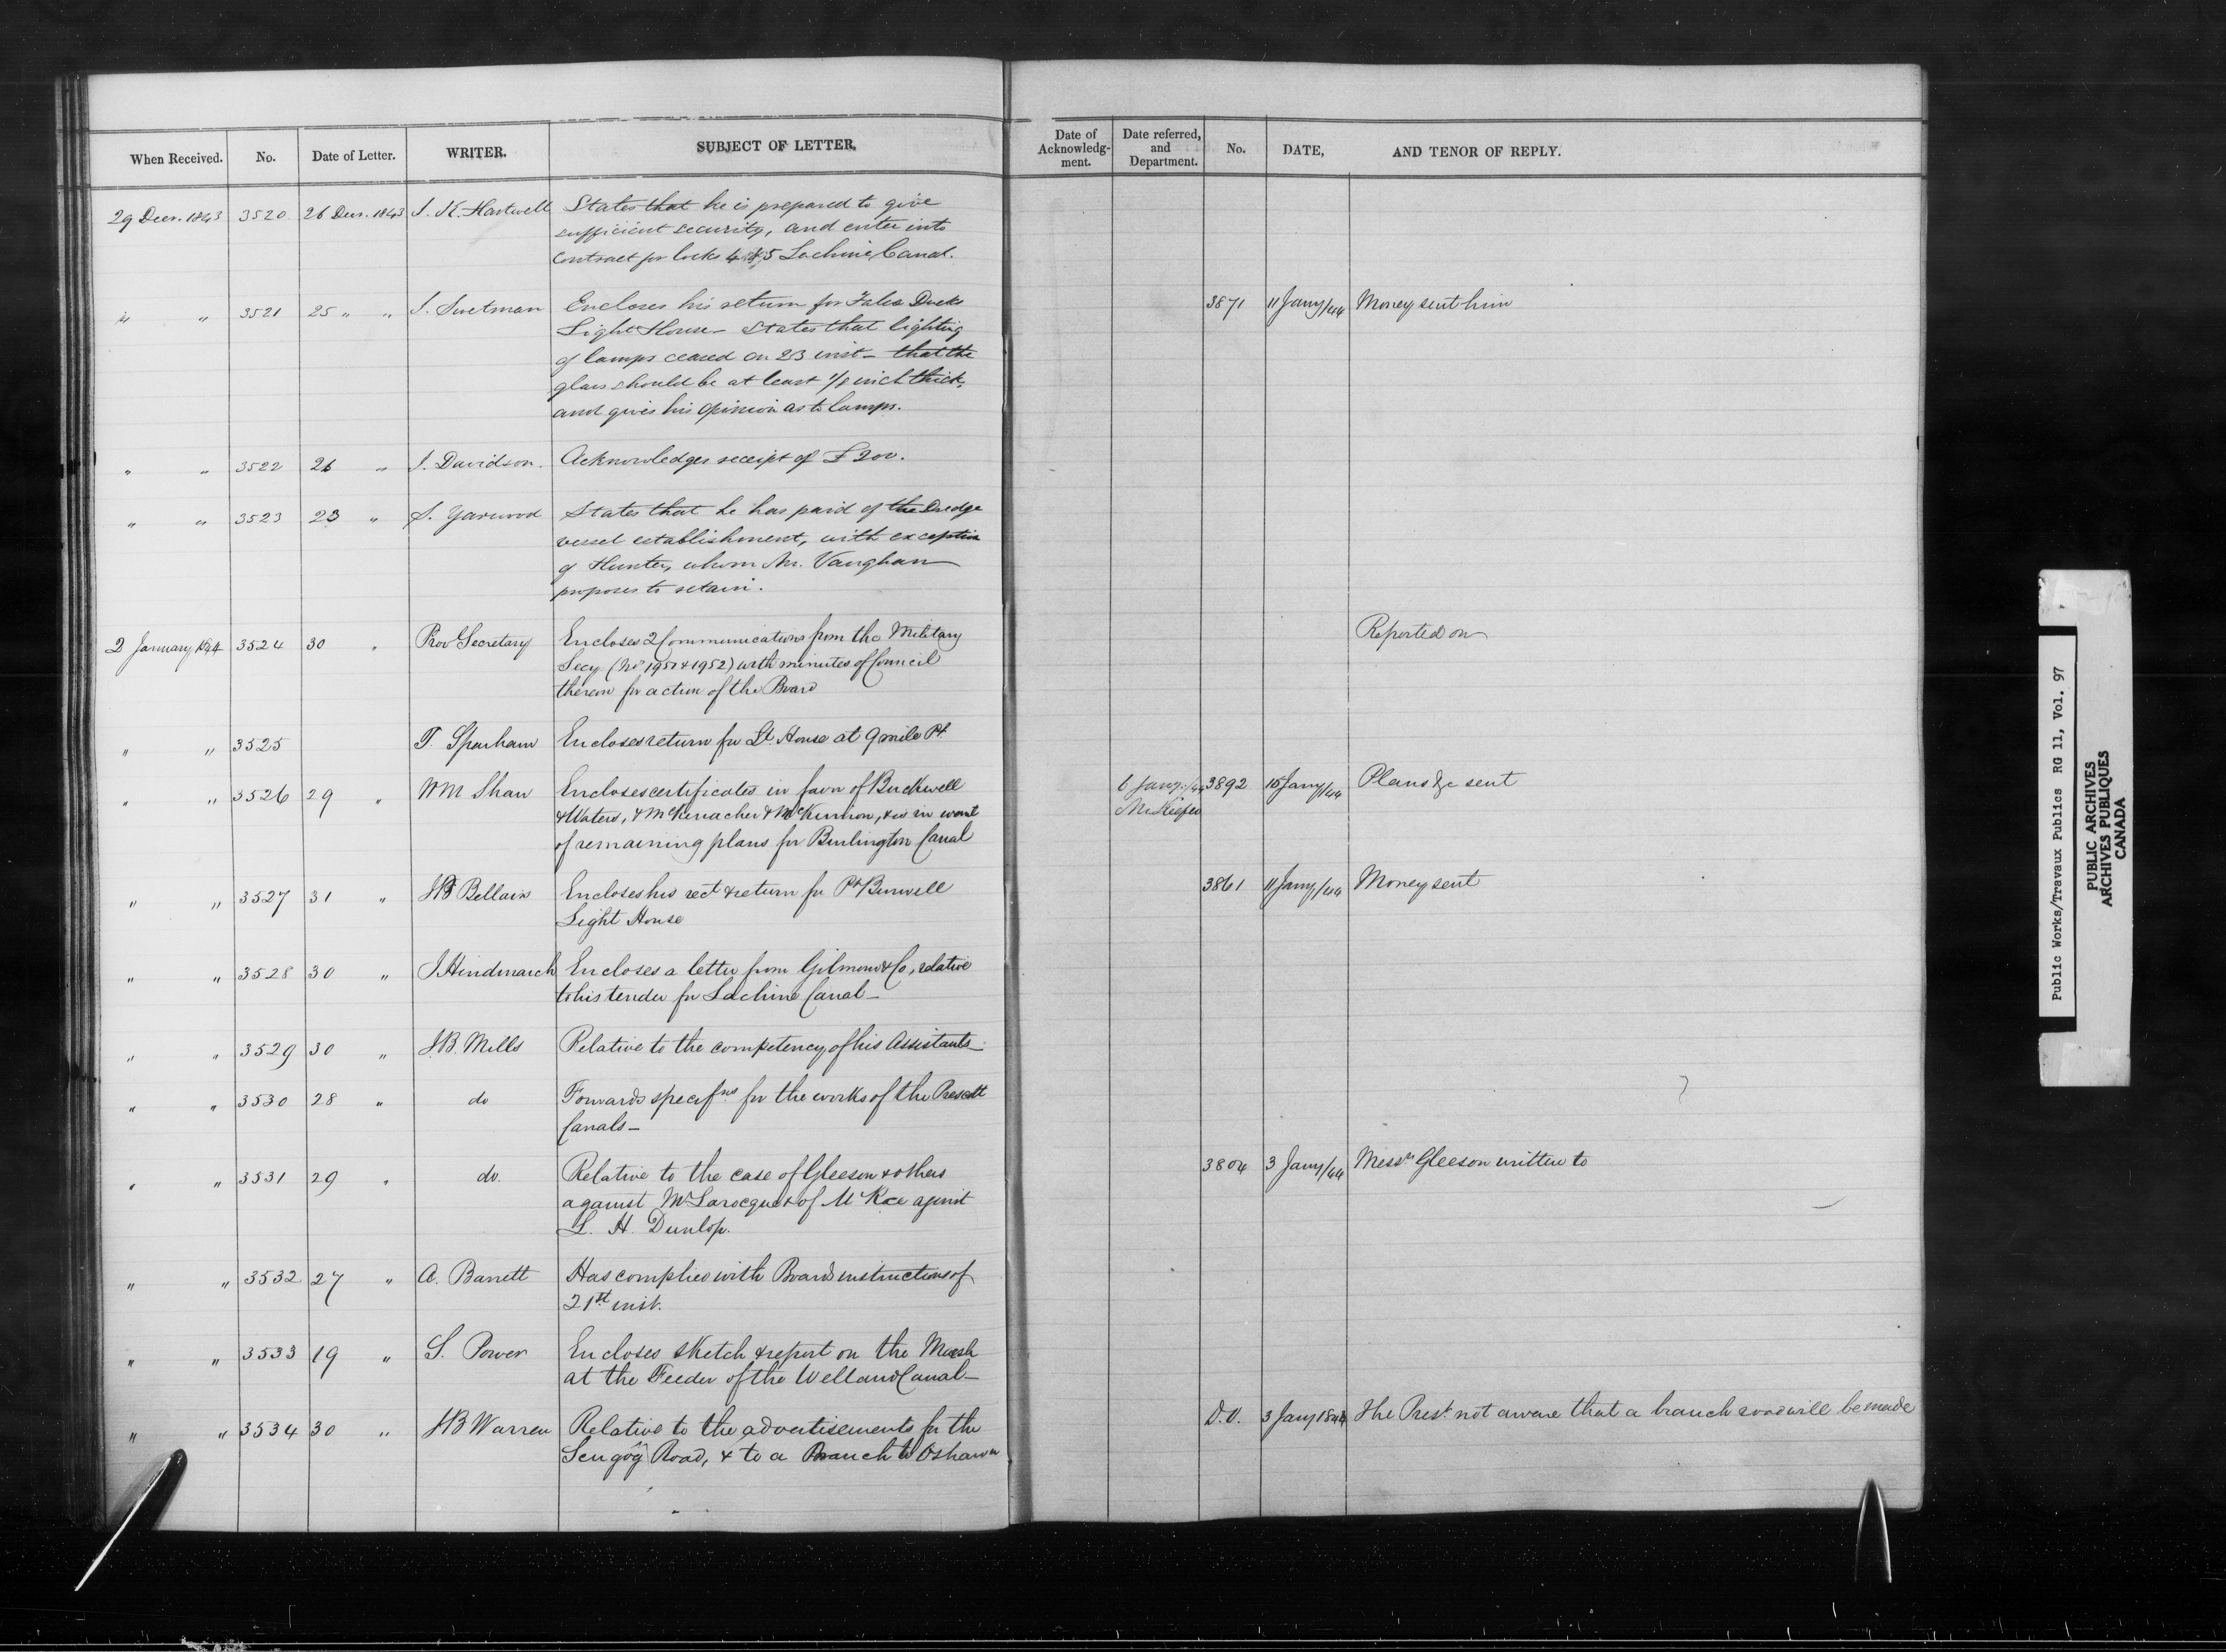 When Received. No. Date of Letter. WRITER. SUBJECT OF LETTER. Date of Acknowledg-ment. Date referred, and Department. No. DATE, AND TENOR OF REPLY.
29 Decr. 1843 3520 26 Decr. 1843 J. K. Hartwell States that he is prepared to give
sufficient security, and enter into
contract for locks 4 & 5 Lachine Canal.
" " 3521 25 " " J. Swetman Encloses his return for False Ducks 3871 11 Jany/44 Money sent him
Light House - States that lighting
of lamps ceased on 23 inst - that the
glass should be at least 1/8 inch thick,
and gives his opinion as to lamps.
" " 3522 26 " J. Davidson. Acknowledges receipt of £200.
" " 3523 23 " S. Yarwood States that he has paid of the Dredge
vessel establishment, with exception
of Hunter, whom Mr. Vaughan
proposes to retain.
2 January 1844 3524 30 " Prov Secretary Encloses 2 Communications from the Military Reported on
Secy. (No 1951 & 1952) with minutes of Council
thereon for action of the Board
" " 3525 T. Sparham Encloses return for Lt. House at 9 mile Pt.
" " 3526 29 " WM Shaw Encloses certificates in favor of Buckwell 6 Jany/44 3892 15 Jany/44 Plans &c sent
& Waters, & McKerracher & McKinnon, & is in want
of remaining plans for Burlington Canal
" " 3527 31 " Bellairs Encloses his rect & return for Pt Burwell 3861 11 Jany/44 Money sent
Light House
" " 3528 30 " J. Hindmarch Encloses a letter from Gilmour & Co, relative
to his tender for Lachine Canal -
" " 3529 30 " J.B. Mills Relative to the competency of his Assistants
" " 3530 28 " do Forwards specifns for the works of the Prescott
Canals -
" " 3531 29 " do. Relative to the case of Gleeson & others 3804 3 Jany/44 Messrs Gleeson written to
against Mr Larocque & of Mc Rae against
L. H. Dunlop.
" " 3532 27 " A. Barrett Has complied with Boards instructions of
21st inst.
" " 3533 19 " S. Power Encloses sketch & report on the Marsh
at the Feeder of the Welland Canal -
" " 3534 30 " J B Warren Relative to the advertisements for the D.O. 3 Jany 1844 The Prest. not aware that a branch road will be made
Scugog Road, & to a Branch to Oshawa
Public Works/Travaux Publics RG 11, Vol. 97
PUBLIC ARCHIVES
ARCHIVES PUBLIQUES
CANADA